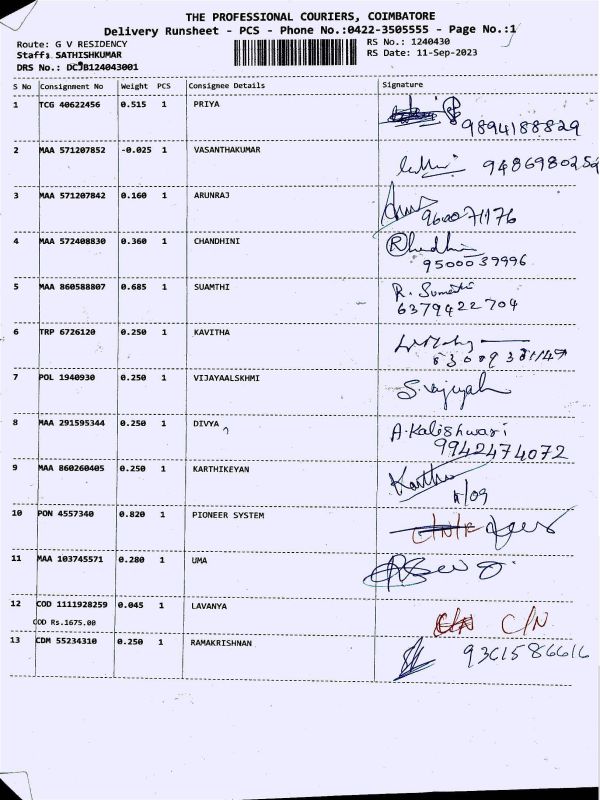 THE PROFESSIONAL COURIERS, COIMBATORE
Delivery Runsheet - PCS - Phone No.:0422-3505555 - Page No.:1
Route: G V RESIDENCY RS No.: 1240430
Staff: SATHISHKUMAR RS Date: 11-Sep-2023
DRS No.: DCJB124043001
S No Consignment No Weight PCS Consignee Details Signature
1 TCG 40622456 0.515 1 PRIYA
9894188829
2 MAA 571207852 -0.025 1 VASANTHAKUMAR 9486980252
3 MAA 571207842 0.160 1 ARUNRAJ
9600071176
4 MAA 572408830 0.360 1 CHANDHINI
9500039996
5 MAA 860588807 0.685 1 SUAMTHI R. Sumathi
6379422704
6 TRP 6726120 0.250 1 KAVITHA
7 POL 1940930 0.250 1 VIJAYAALSKHMI
8 MAA 291595344 0.250 1 DIVYA A.Kalishwari
9942474072
9 MAA 860260405 0.250 1 KARTHIKEYAN
11/09
10 PON 4557340 0.820 1 PIONEER SYSTEM
11 MAA 103745571 0.280 1 UMA
12 COD 1111928259 0.045 1 LAVANYA
COD Rs.1675.00 C/N
13 CDM 55234310 0.250 1 RAMAKRISHNAN 9361586616